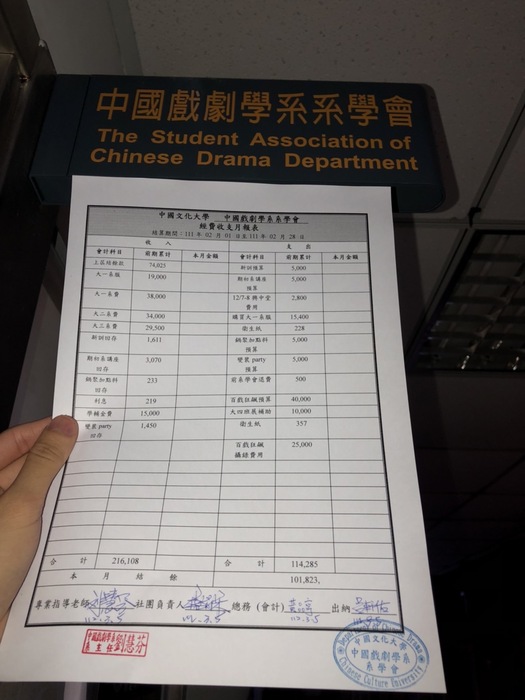 中國戲劇學系系學會
The Student Association of
Chinese Drama Department
中國文化大學 中國戲劇學系系學會
經費收支月報表
結算期間：111 年 02 月 01 日至 111 年 02 月 28 日
收 入 支 出
會計科目 前期累計 本月金額 會計科目 前期累計 本月金額
上屆結餘款 74,025 新訓預算 5,000
大一系服 19,000 期初系講座預算 5,000
大一系費 38,000 12/7-8 興中堂費用 2,800
大二系費 34,000 購買大一系服 15,400
大三系費 29,500 衛生紙 228
新訓回存 1,611 鍋聚加點料預算 5,000
期初系講座回存 3,070 雙蛋 party 預算 5,000
鍋聚加點料回存 233 前系學會退費 500
利息 219 百戲狂飆預算 40,000
學輔金費 15,000 大四班展補助 10,000
雙蛋 party 回存 1,450 衛生紙 357
百戲狂飆攝錄費用 25,000
合 計 216,108 合 計 114,285
本 月 結 餘 101,823,
專業指導老師 社團負責人 總務（會計） 出納
112.3.5 112.3.5
中國戲劇學系
系主任 劉慧芬
中國文化大學
中國戲劇學系
系學會
Chinese Culture University